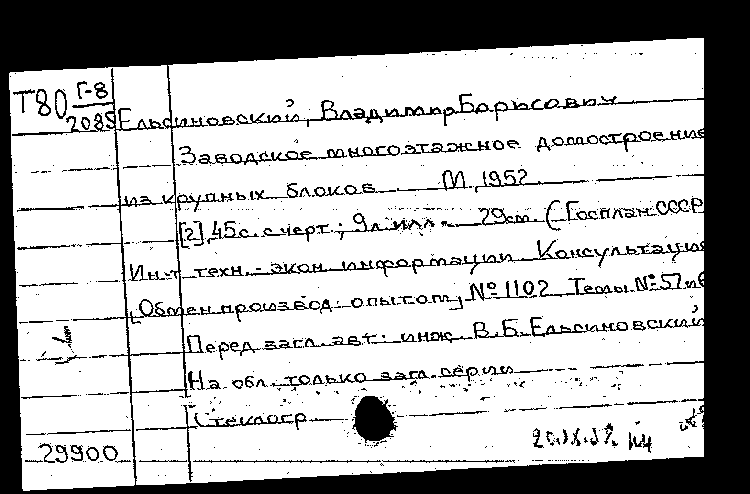 Т80 Г-8
2085 Ельсиновский, Владимир Борисович
Заводское многоэтажное домостроение
из крупных блоков. М, 1952
[2], 45 с. с черт.; 9 л. илл. 29 см. (Госплан СССР
Ин-т техн.-экон. информации Консультация
"Обмен производ. опытом" № 1102 Темы № 57
Перед загл. авт.: инж. В.Б.Ельсиновский
На обл. только загл. серии
Стеклогр.
29900